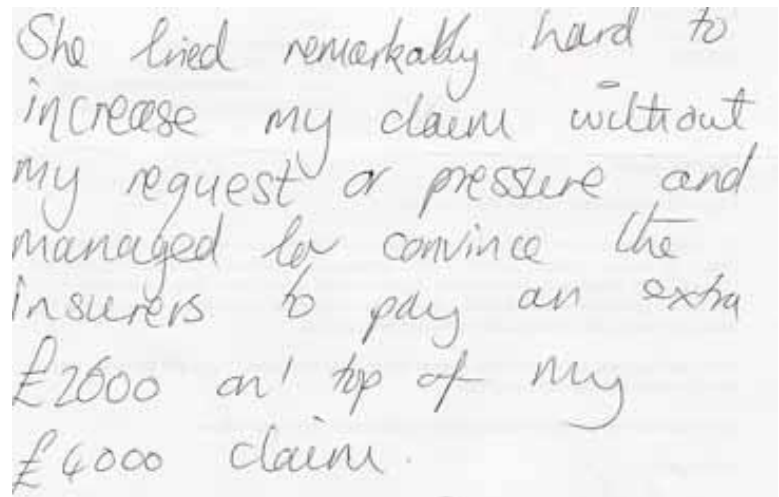 She tried remarkably hard to
increase my claim without
my request or pressure and
managed to convince the
insurers to pay an extra
£2600 on top of my
£4000 claim.